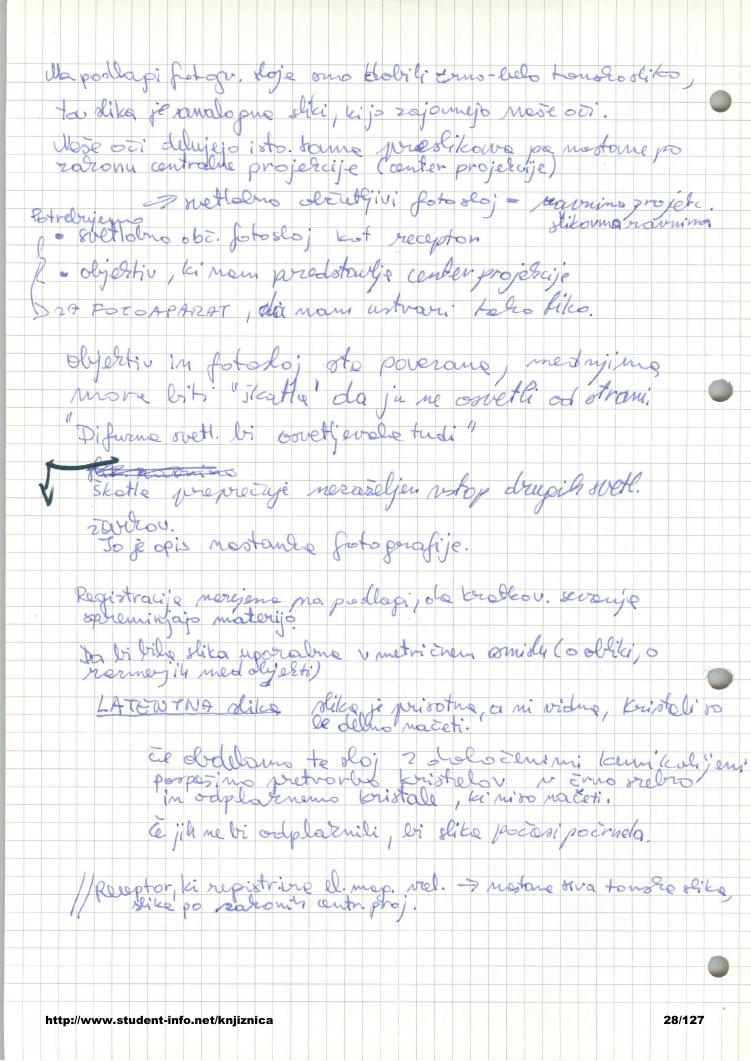 Na podlagi fotogr. sloja smo dobili črno-belo tonsko sliko,
ta slika je analogna sliki, ki jo zajamejo naše oči.
Naše oči delujejo isto. Sama preslikava pa nastane po
zakonu centralne projekcije (center projekcije)
→ svetlobno občutljivi fotosloj = ravnina projekc.
slikovna ravnina
Potrebujemo
• svetlobno obč. fotosloj kot receptor
• objektiv, ki nam predstavlja center projekcije
ZA FOTOAPARAT, da nam ustvari tako sliko.
objektiv in fotosloj sta povezana, med njima
mora biti "škatla" da ju ne osvetli od strani.
"Difuzna svetl. bi osvetljevala tudi"
škatla preprečuje nezaželjen vstop drugih svetl.
žarkov.
To je opis nastanka fotografije.
Registracija narejena na podlagi, da kratkov. sevanja
spreminjajo materijo
Da bi bila slika uporabna v metričnem smislu (o obliki, o
razmerjih med objekti)
LATENTNA slika slika je prisotna, a ni vidna, kristali so
le delno načeti.
če obdelamo ta sloj z določenimi kemikalijami
pospešimo pretvorbo kristalov v črno srebro
in odplaknemo kristale, ki niso načeti.
Če jih ne bi odplaknili, bi slika počasi počrnela.
// Receptor, ki registrira el. mag. val. → nastane siva tonska slika,
slika po zakonih centr. proj.
http://www.student-info.net/knjiznica 28/127